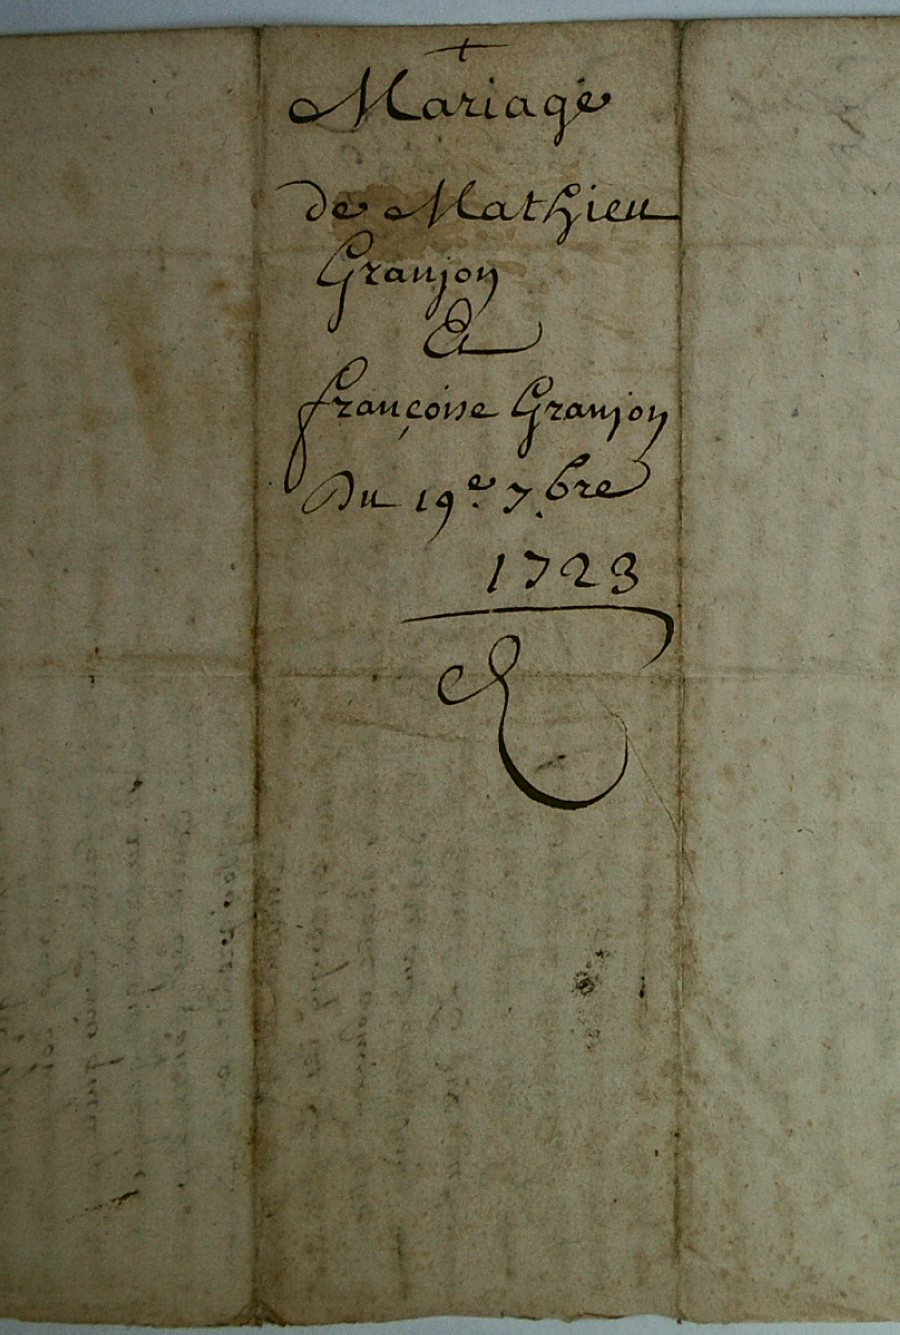 +
Mariage
de Mathieu
Granjon
Et
françoise Granjon
Du 19e. 7.bre
1723